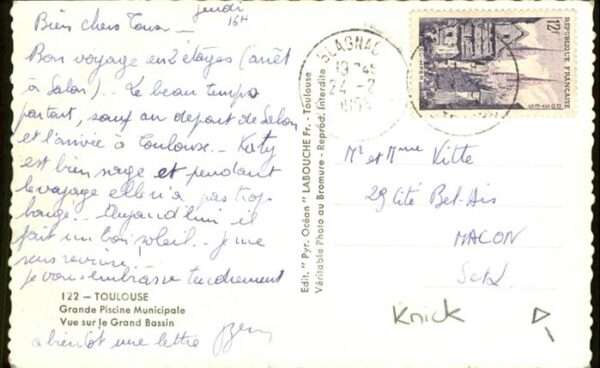 jeudi
16H
Bien chers Tous —
Bon voyage en 2 étapes (arrêt
à Salon).. Le beau temps
partout, sauf au départ de Salon
et l'arrivée à Toulouse.. Katy
est bien sage et pendant
le voyage elle n'a pas trop
bougé.. Aujourd'hui il
fait un bon soleil.. je me
sens revivre!
je vous embrasse tendrement
122 — TOULOUSE
Grande Piscine Municipale
Vue sur le Grand Bassin
a bientot une lettre
Edit. "Pyr. Océan" LABOUCHE Fr. - Toulouse
Véritable Photo au Bromure - Reprod. Interdite
BLAGNAC
12F
REPUBLIQUE FRANÇAISE
POSTES
Mr et Mme Vitte
29 Cité Bel-Air
MACON
S et L
Knick